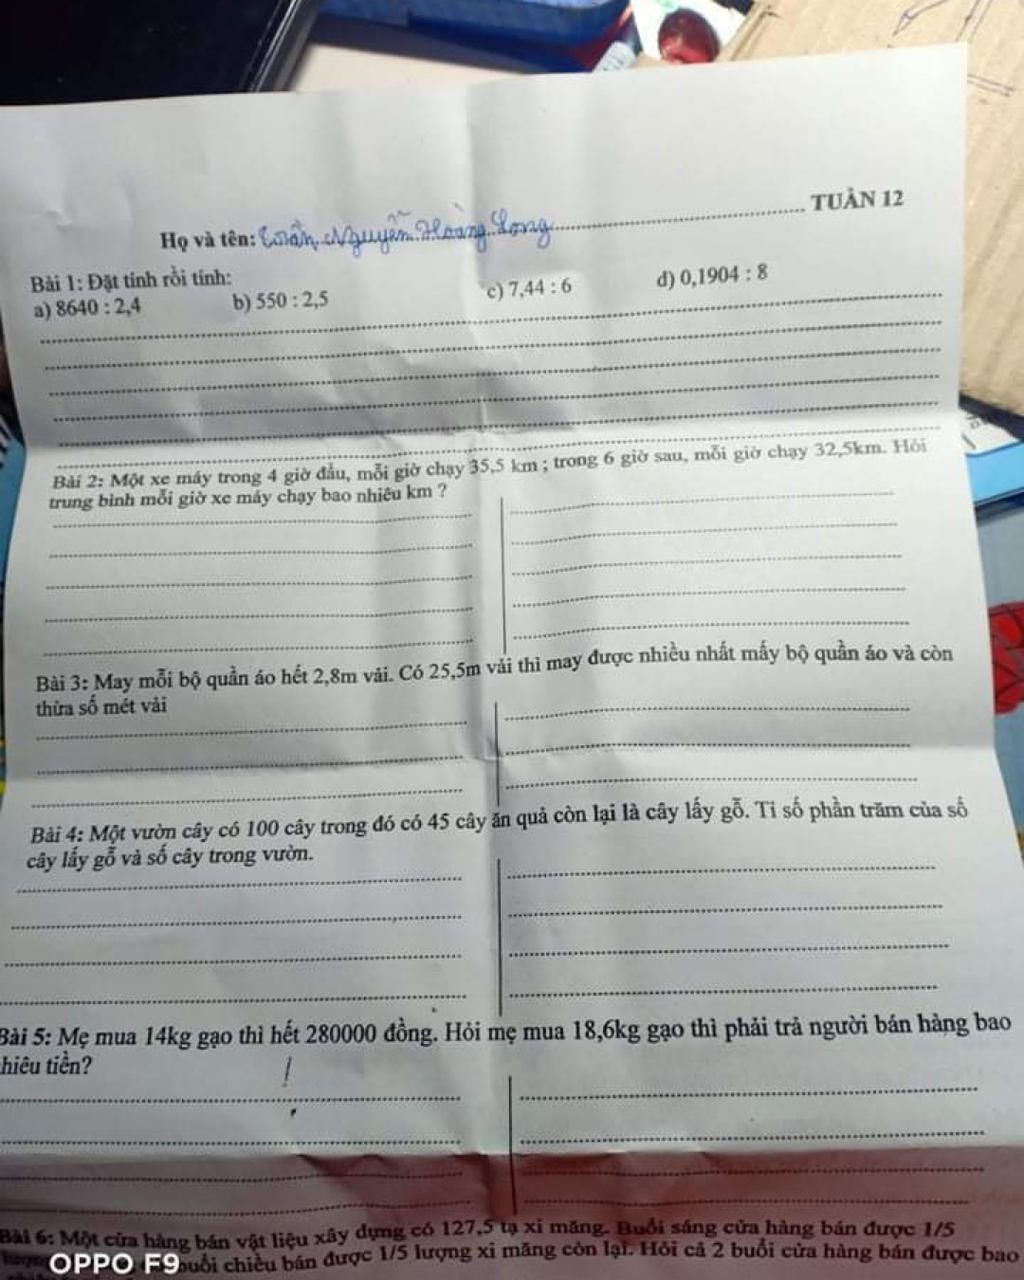 TUẦN 12
Họ và tên: Trần Nguyễn Hoàng Long
Bài 1: Đặt tính rồi tính:
a) 8640 : 2,4 b) 550 : 2,5 c) 7,44 : 6 d) 0,1904 : 8
Bài 2: Một xe máy trong 4 giờ đầu, mỗi giờ chạy 35,5 km ; trong 6 giờ sau, mỗi giờ chạy 32,5km. Hỏi
trung bình mỗi giờ xe máy chạy bao nhiêu km ?
Bài 3: May mỗi bộ quần áo hết 2,8m vải. Có 25,5m vải thì may được nhiều nhất mấy bộ quần áo và còn
thừa số mét vải
Bài 4: Một vườn cây có 100 cây trong đó có 45 cây ăn quả còn lại là cây lấy gỗ. Tỉ số phần trăm của số
cây lấy gỗ và số cây trong vườn.
Bài 5: Mẹ mua 14kg gạo thì hết 280000 đồng. Hỏi mẹ mua 18,6kg gạo thì phải trả người bán hàng bao
hiêu tiền?
Bài 6: Một cửa hàng bán vật liệu xây dựng có 127,5 tạ xi măng. Buổi sáng cửa hàng bán được 1/5
buổi chiều bán được 1/5 lượng xi măng còn lại. Hỏi cả 2 buổi cửa hàng bán được bao
OPPO F9